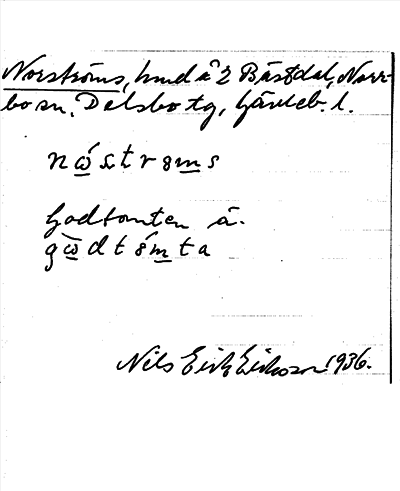 Norströms, hmd å 2 Bästdal, Norr-
bo sn. Delsbo tg, Gävleb. l.
nώştrøms
Godtomten å.
gω̄dtómta
Nils Erik Eriksson 1936.